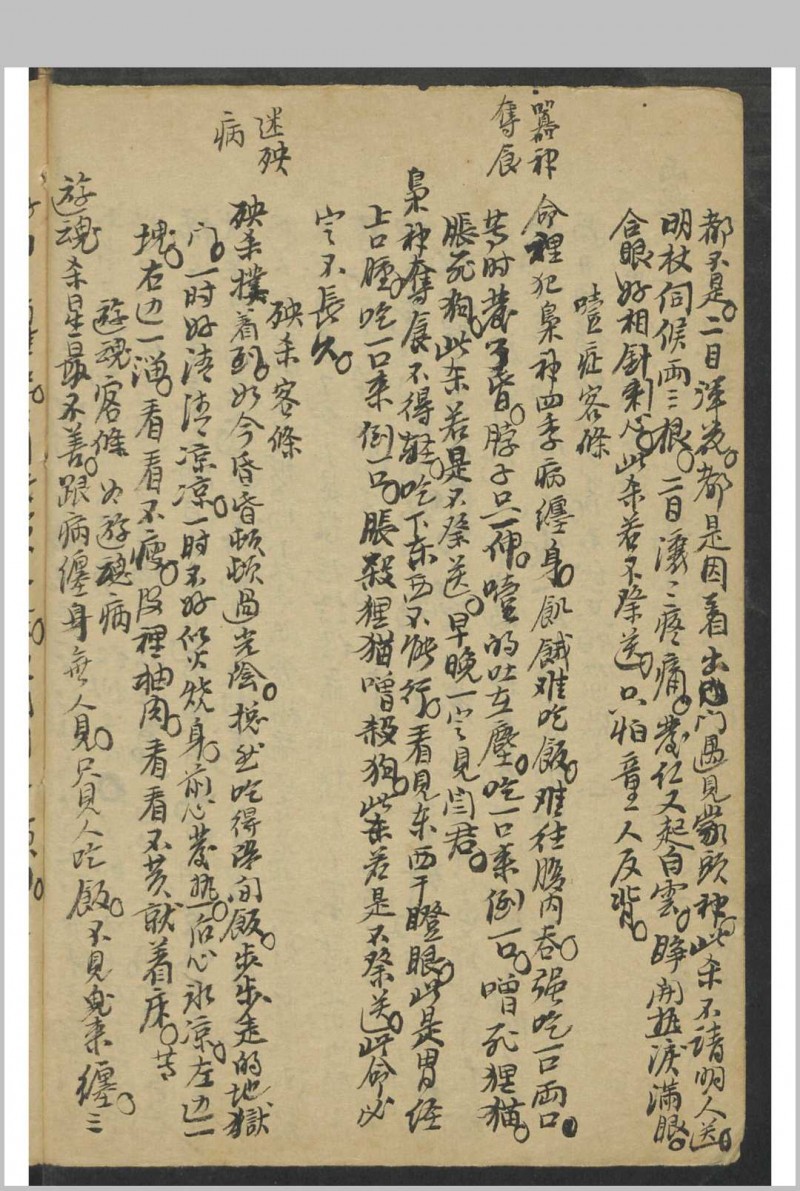 都不是。二目浑花。都是因着出门遇見蒙頭神。此杀不請明人送。
明杖伺候兩三根。二目濃〻疼痛。發红又起白雲。睁開 淚滿眼。
合眼好相針刺心。此杀若不祭送。只怕童人反背。
噎症客條
囂神
奪食
命裡犯梟神四季病纏身。飢餓难吃飯。难往腹内吞。强吃一口兩口。
苦时發了昏。脖子只一伸。噎的吐在塵。吃一口来倒一口。噌死狸猫。
脹死狗。此杀若是不祭送。早晚一定見闫君。
梟神奪食不得輕。吃下东西不能行。看見东西干瞪眼。此是胃经
上口腫。吃一口来倒一口。脹殺狸猫噌殺狗。此杀若是不祭送。此命必
定不長久。
殃杀客條
迷殃
病
殃杀撲着到。如今昏昏頓頓過光陰。總然吃得陽间飯。步步走的地獄
门。一时好清清凉凉。一时不好似火烧身。前心發热后心氷凉。左边一
塊。右边一溜。看看不瘦。皮裡抽肉。看看不黄就着床。苦
遊魂客條 必遊魂病
遊魂杀星最不善。跟病纏身無人見。只見人吃飯。不見鬼来纏。三